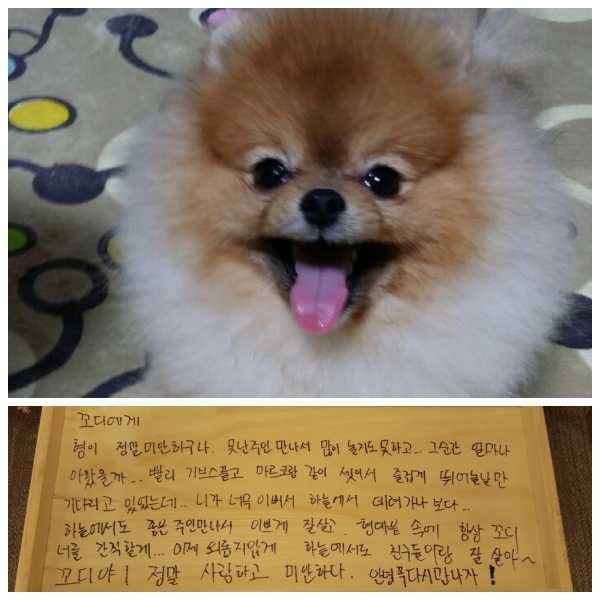 꼬디에게
형이 정말미안하구나. 못난주인 만나서 많이 놀지도못하고... 그순간 얼마나
아팠을까... 빨리 기브스풀고 마르코랑 같이 셋이서 즐겁게 뛰어놀날만
기다리고 있었는데... 니가 너무 이뻐서 하늘에서 데려가나 보다...
하늘에서도 좋은 주인만나서 이쁘게 잘살고 형마음 속에 항상 꼬디
너를 간직할게... 이제 외롭지않게 하늘에서도 친구들이랑 잘 살아~
꼬디야! 정말 사랑하고 미안하다. 안녕꼭다시만나자!